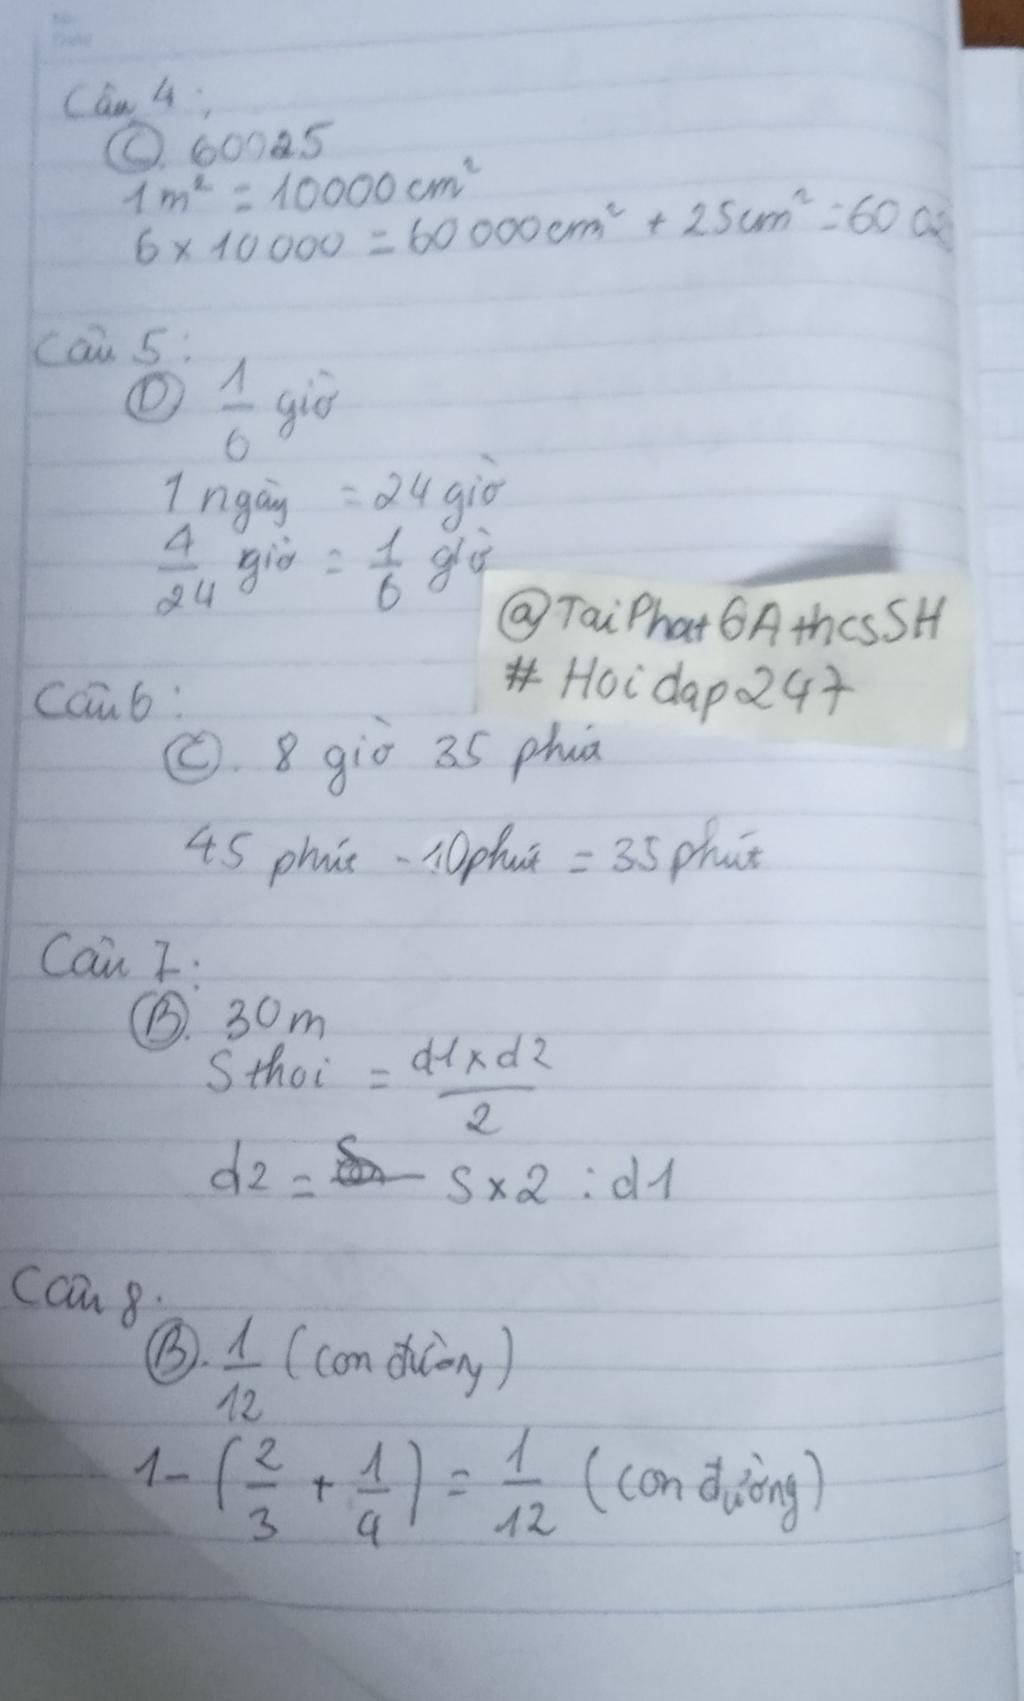 Câu 4:
C. 60025
1m² = 10000cm²
6 x 10000 = 60000cm² + 25cm² = 600
Câu 5:
D 1/6 giờ
1 ngày = 24 giờ
4/24 giờ = 1/6 giờ
@TaiPhat6AthcsSH
# Hoidap247
Câu 6:
C. 8 giờ 35 phút
45 phút - 10phút = 35phút
Câu 7:
B. 30m
S thoi = d1 x d2 / 2
d2 = S x 2 : d1
Câu 8.
B. 1/12 (con đường)
1 - (2/3 + 1/4) = 1/12 (con đường)